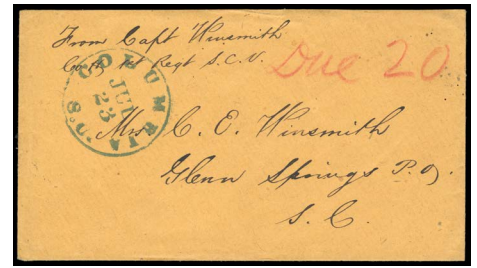 From Capt Winsmith
Co. H, 1st Regt S.C.V.
Due 20
COLUMBIA S.C.
JUL
23
Mrs C. E. Winsmith
Glenn Springs P.O.
S. C.